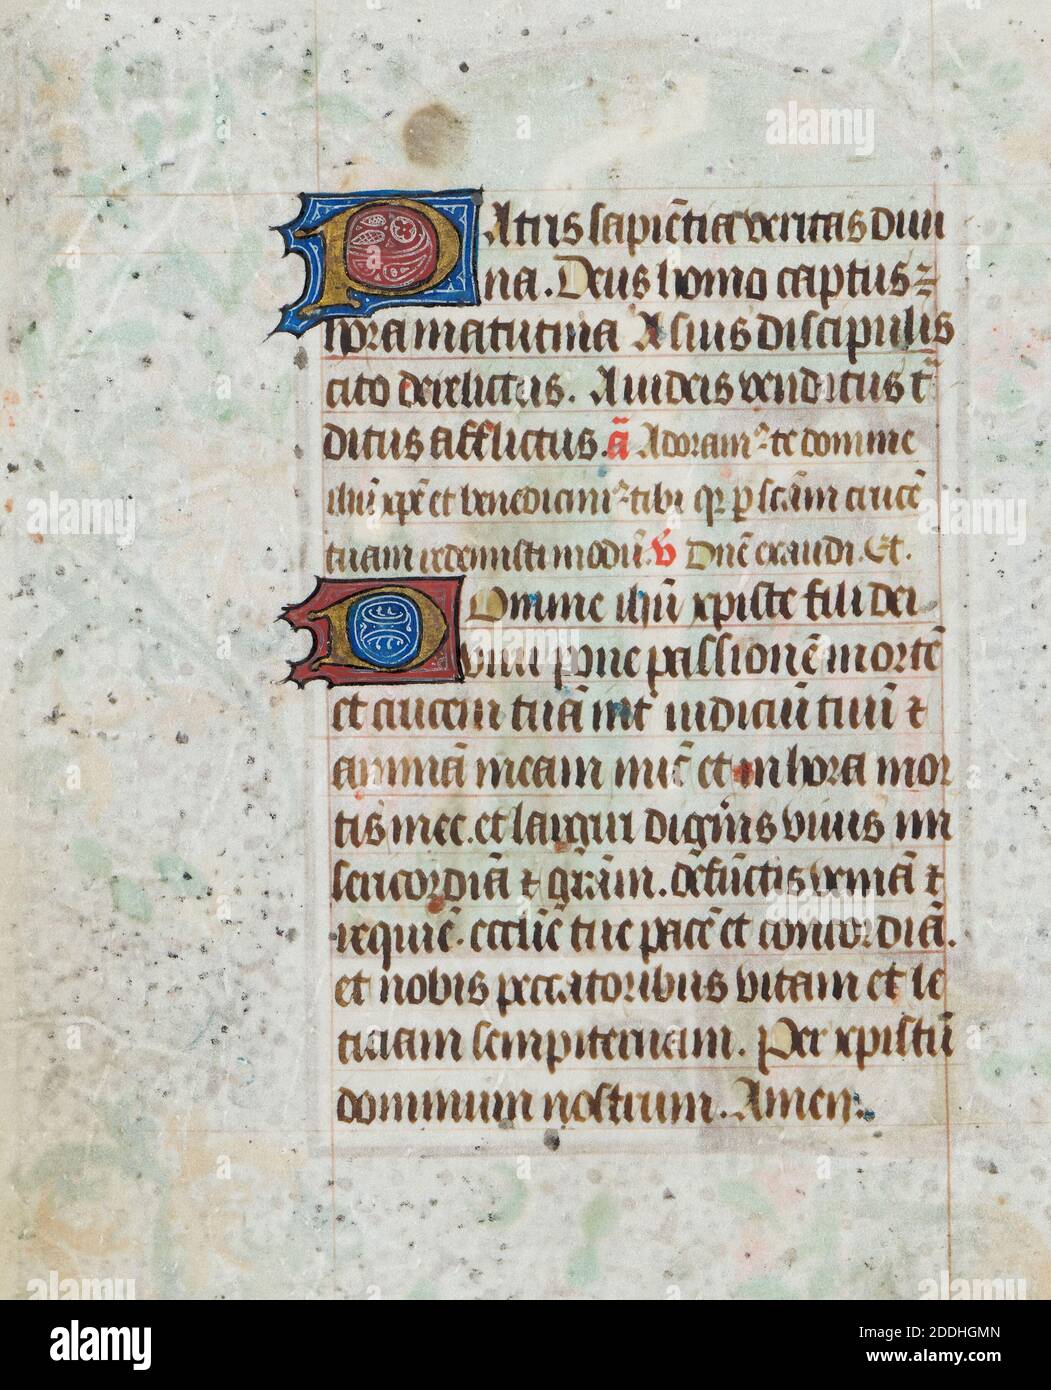 PAtris sapiēcia veritas diui
na. Deus homo captus ē
hora matutina A suis discipulis
cito derelictus. A iudeis venditus t̄
ditus afflictus. ā Adoram⁹ te domine
ihū xp̄e et benedicim⁹ tibi q̄ p scām crucē
tuam redemisti modū. v̄ Dn̄e exaudi. Et.
DOmine ihū xpiste fili dei
viui pone passionē mortē
et crucem tuā int̄ iudiciū tuū ⁊
animā meam nūc et in hora mor
tis mee. et largiri dignēris viuis mi
sericordiā ⁊ grām. defūctis veniā ⁊
requiē. ecclīe tue pacē et concordiā.
et nobis peccatoribus vitam et le
ticiam sempiternam. Per xpistū
dominum nostrum. Amen.
alamy
a
Image ID: 2DDHGMN
www.alamy.com